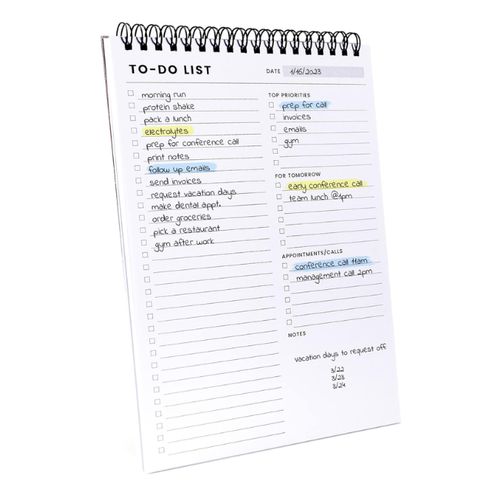 TO-DO LIST
DATE 1/15/2023
morning run
protein shake
pack a lunch
electrolytes
prep for conference call
print notes
follow up emails
send invoices
request vacation days
make dental appt.
order groceries
pick a restaurant
gym after work
TOP PRIORITIES
prep for call
invoices
emails
gym
FOR TOMORROW
early conference call
team lunch @1pm
APPOINTMENTS/CALLS
conference call 11am
management call 2pm
NOTES
vacation days to request off
3/22
3/23
3/24